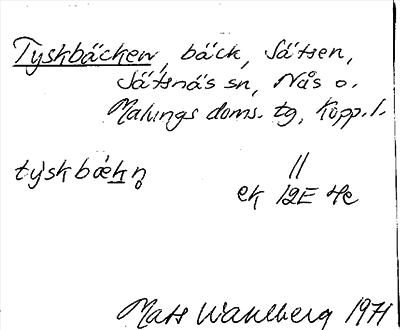 Tyskbäcken, bäck, Sätsen,
Sätsnäs sn, Nås o.
Malungs doms. tg, Kopp. l.
týskbæ̀kn̥ "
ek 12E 4e
Mats Wahlberg 1971